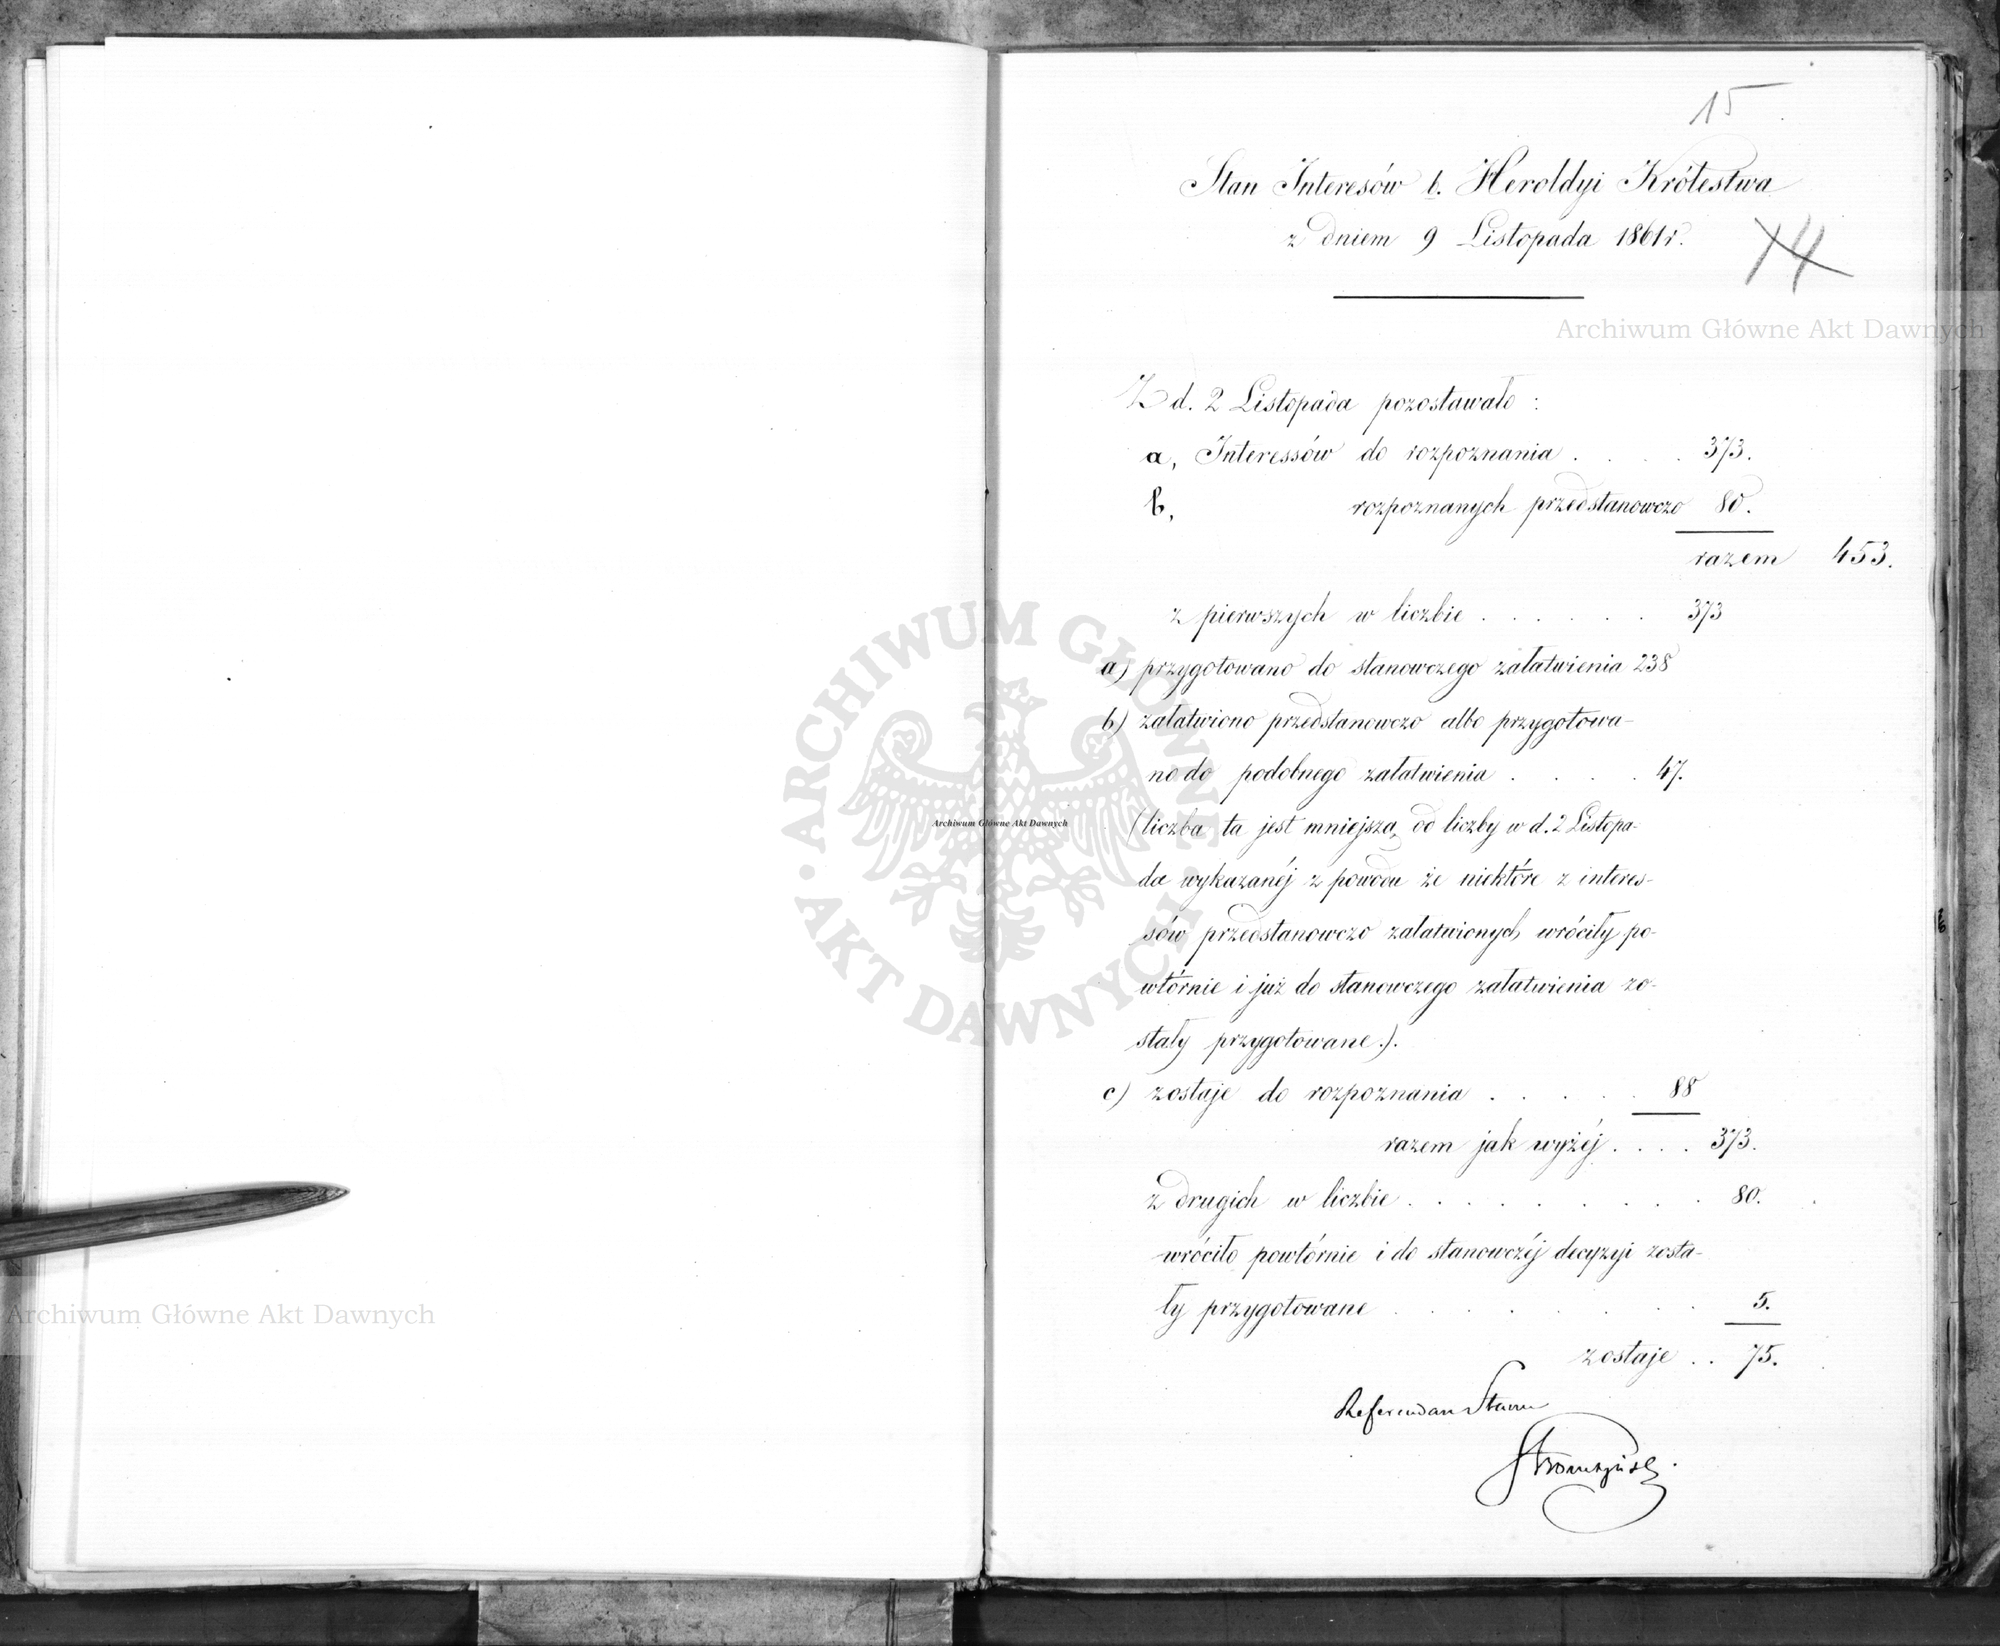 15
Stan Interesów b. Heroldyi Królestwa
z dniem 9 Listopada 1861 r.
14
Archiwum Główne Akt Dawnych
Z d. 2 Listopada pozostawało :
a, Interessów do rozpoznania . . . . 373.
b, rozpoznanych przedstanowczo 80.
razem 453.
z pierwszych w liczbie . . . . . . 373
a) przygotowano do stanowczego załatwienia 238
b) załatwiono przedstanowczo albo przygotowa-
no do podobnego załatwienia . . . . 47.
(liczba ta jest mniejsza od liczby w d. 2 Listopa-
da wykazanéj z powodu że niektóre z interes-
sów przedstanowczo załatwionych wróciły po-
wtórnie i już do stanowczego załatwienia zo-
stały przygotowane.).
c) zostaje do rozpoznania . . . . . 88
razem jak wyżéj . . . . 373.
z drugich w liczbie . . . . . . . . . 80.
wróciło powtórnie i do stanowczéj decyzyi zosta-
ły przygotowane . . . . . . . . 5.
zostaje . . 75.
Referendarz Stanu
Stronczyński
ARCHIWUM GŁÓWNE AKT DAWNYCH
Archiwum Główne Akt Dawnych
Archiwum Główne Akt Dawnych